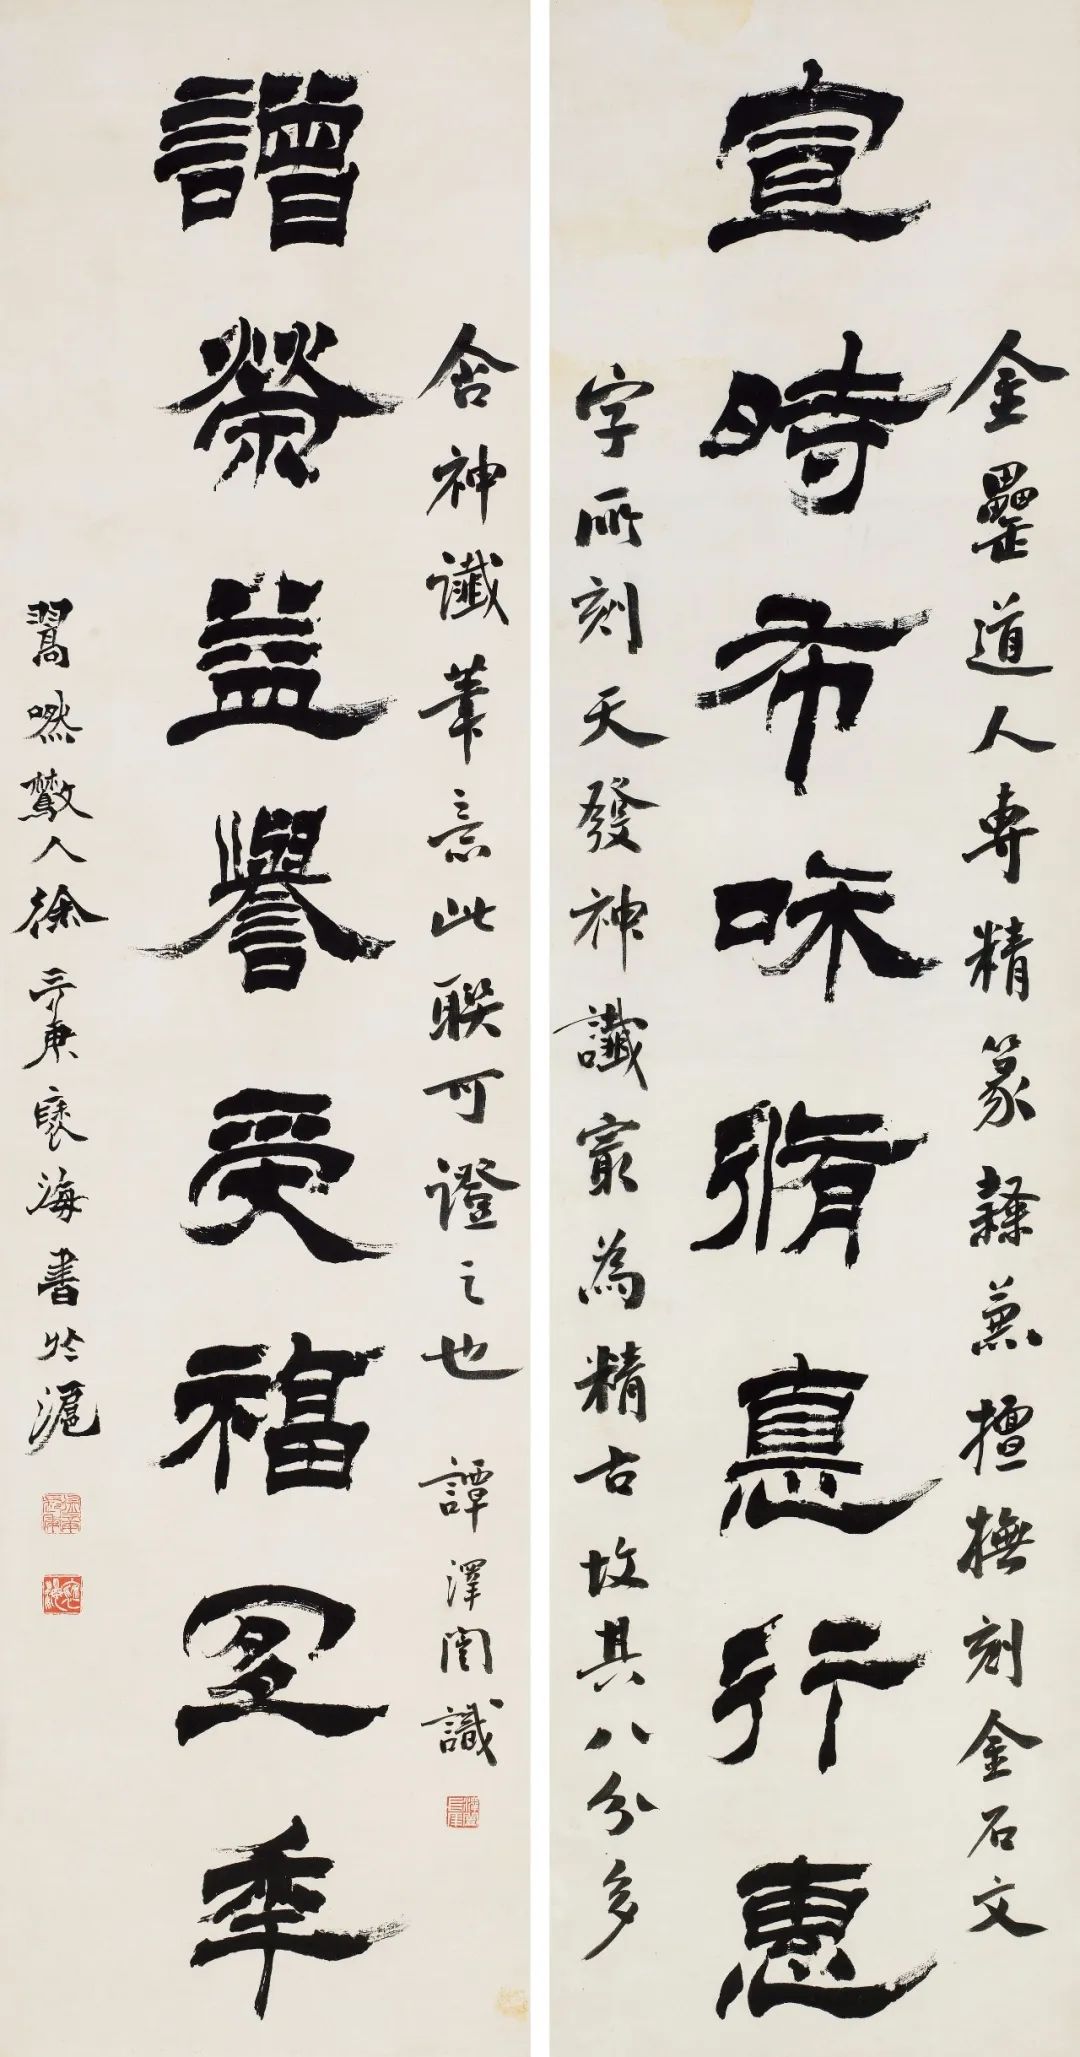 金罍道人專精篆隸兼擅橅刻金石文
宣時布咊脩悳行惠
字所刻天發神讖㝡為精古故其八分多
含神讖筆意此聯可證之也 譚澤闓識
譄榮益譽受福宜秊
翯嘫散人徐三庚褎海書於滬